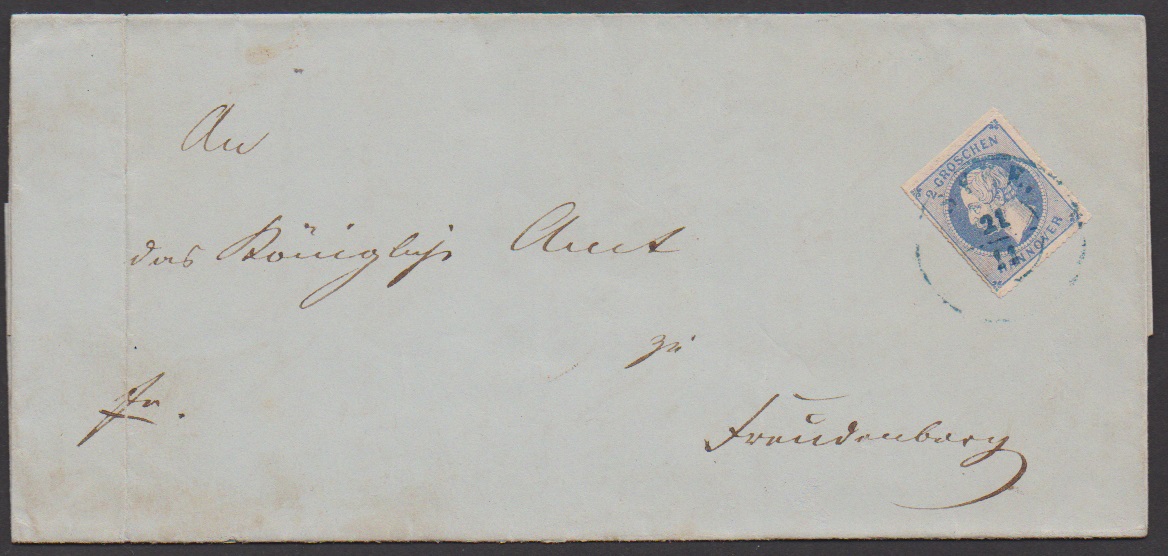 An
2 GROSCHEN
HANNOVER
21
11
das Königliche Amt
zu
fr.
Freudenberg